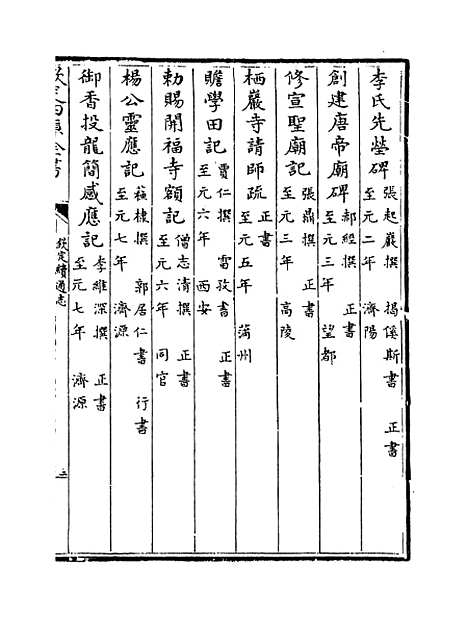 李氏先塋碑 張起巖撰 揭傒斯書 正書 至元二年 濟陽
創建唐帝廟碑 郝經撰 正書 至元三年 望都
修宣聖廟記 張鼎撰 正書 至元三年 高陵
栖巖寺請師疏 正書 至元五年 蒲州
贍學田記 賈仁撰 雷孜書 正書 至元六年 西安
勅賜開福寺額記 僧志清撰 正書 至元六年 同官
楊公靈應記 蘓棣撰 郭居仁書 行書 至元七年 濟源
御香投龍簡感應記 李維深撰 正書 至元七年 濟源
欽定四庫全書 欽定續通志 三